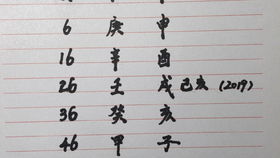 6 庚 申
16 辛 酉
26 壬 戌 己亥 (2019)
36 癸 亥
46 甲 子